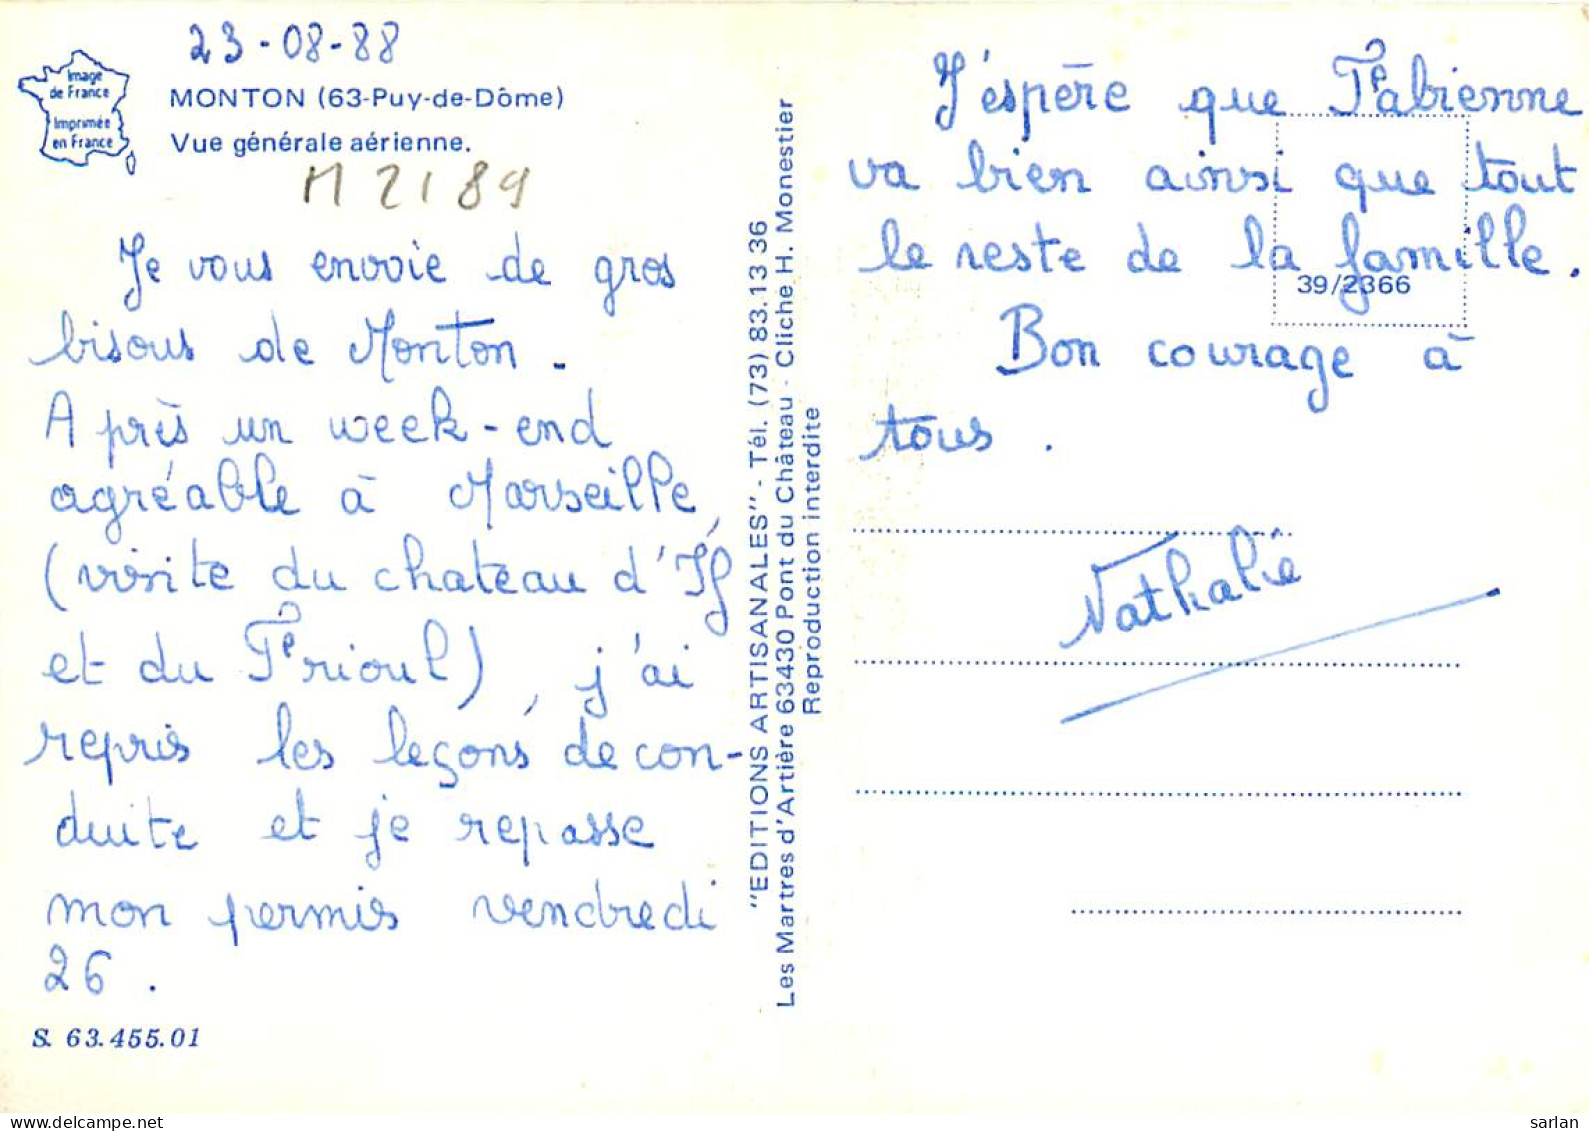 23-08-88
Image
de France
Imprimée
en France
MONTON (63-Puy-de-Dôme)
Vue générale aérienne.
M 2189
Je vous envoie de gros
bisous de Monton.
Après un week-end
agréable à Marseille,
(visite du chateau d'If
et du Frioul), j'ai
repris les leçons de con-
duite et je repasse
mon permis vendredi
26.
S. 63.455.01
"EDITIONS ARTISANALES" - Tél. (73) 83.13 36
Les Martres d'Artière 63430 Pont du Château - Cliche H. Monestier
Reproduction interdite
J'espère que Fabienne
va bien ainsi que tout
le reste de la famille.
39/2366
Bon courage à
tous.
Nathalie
sarlan